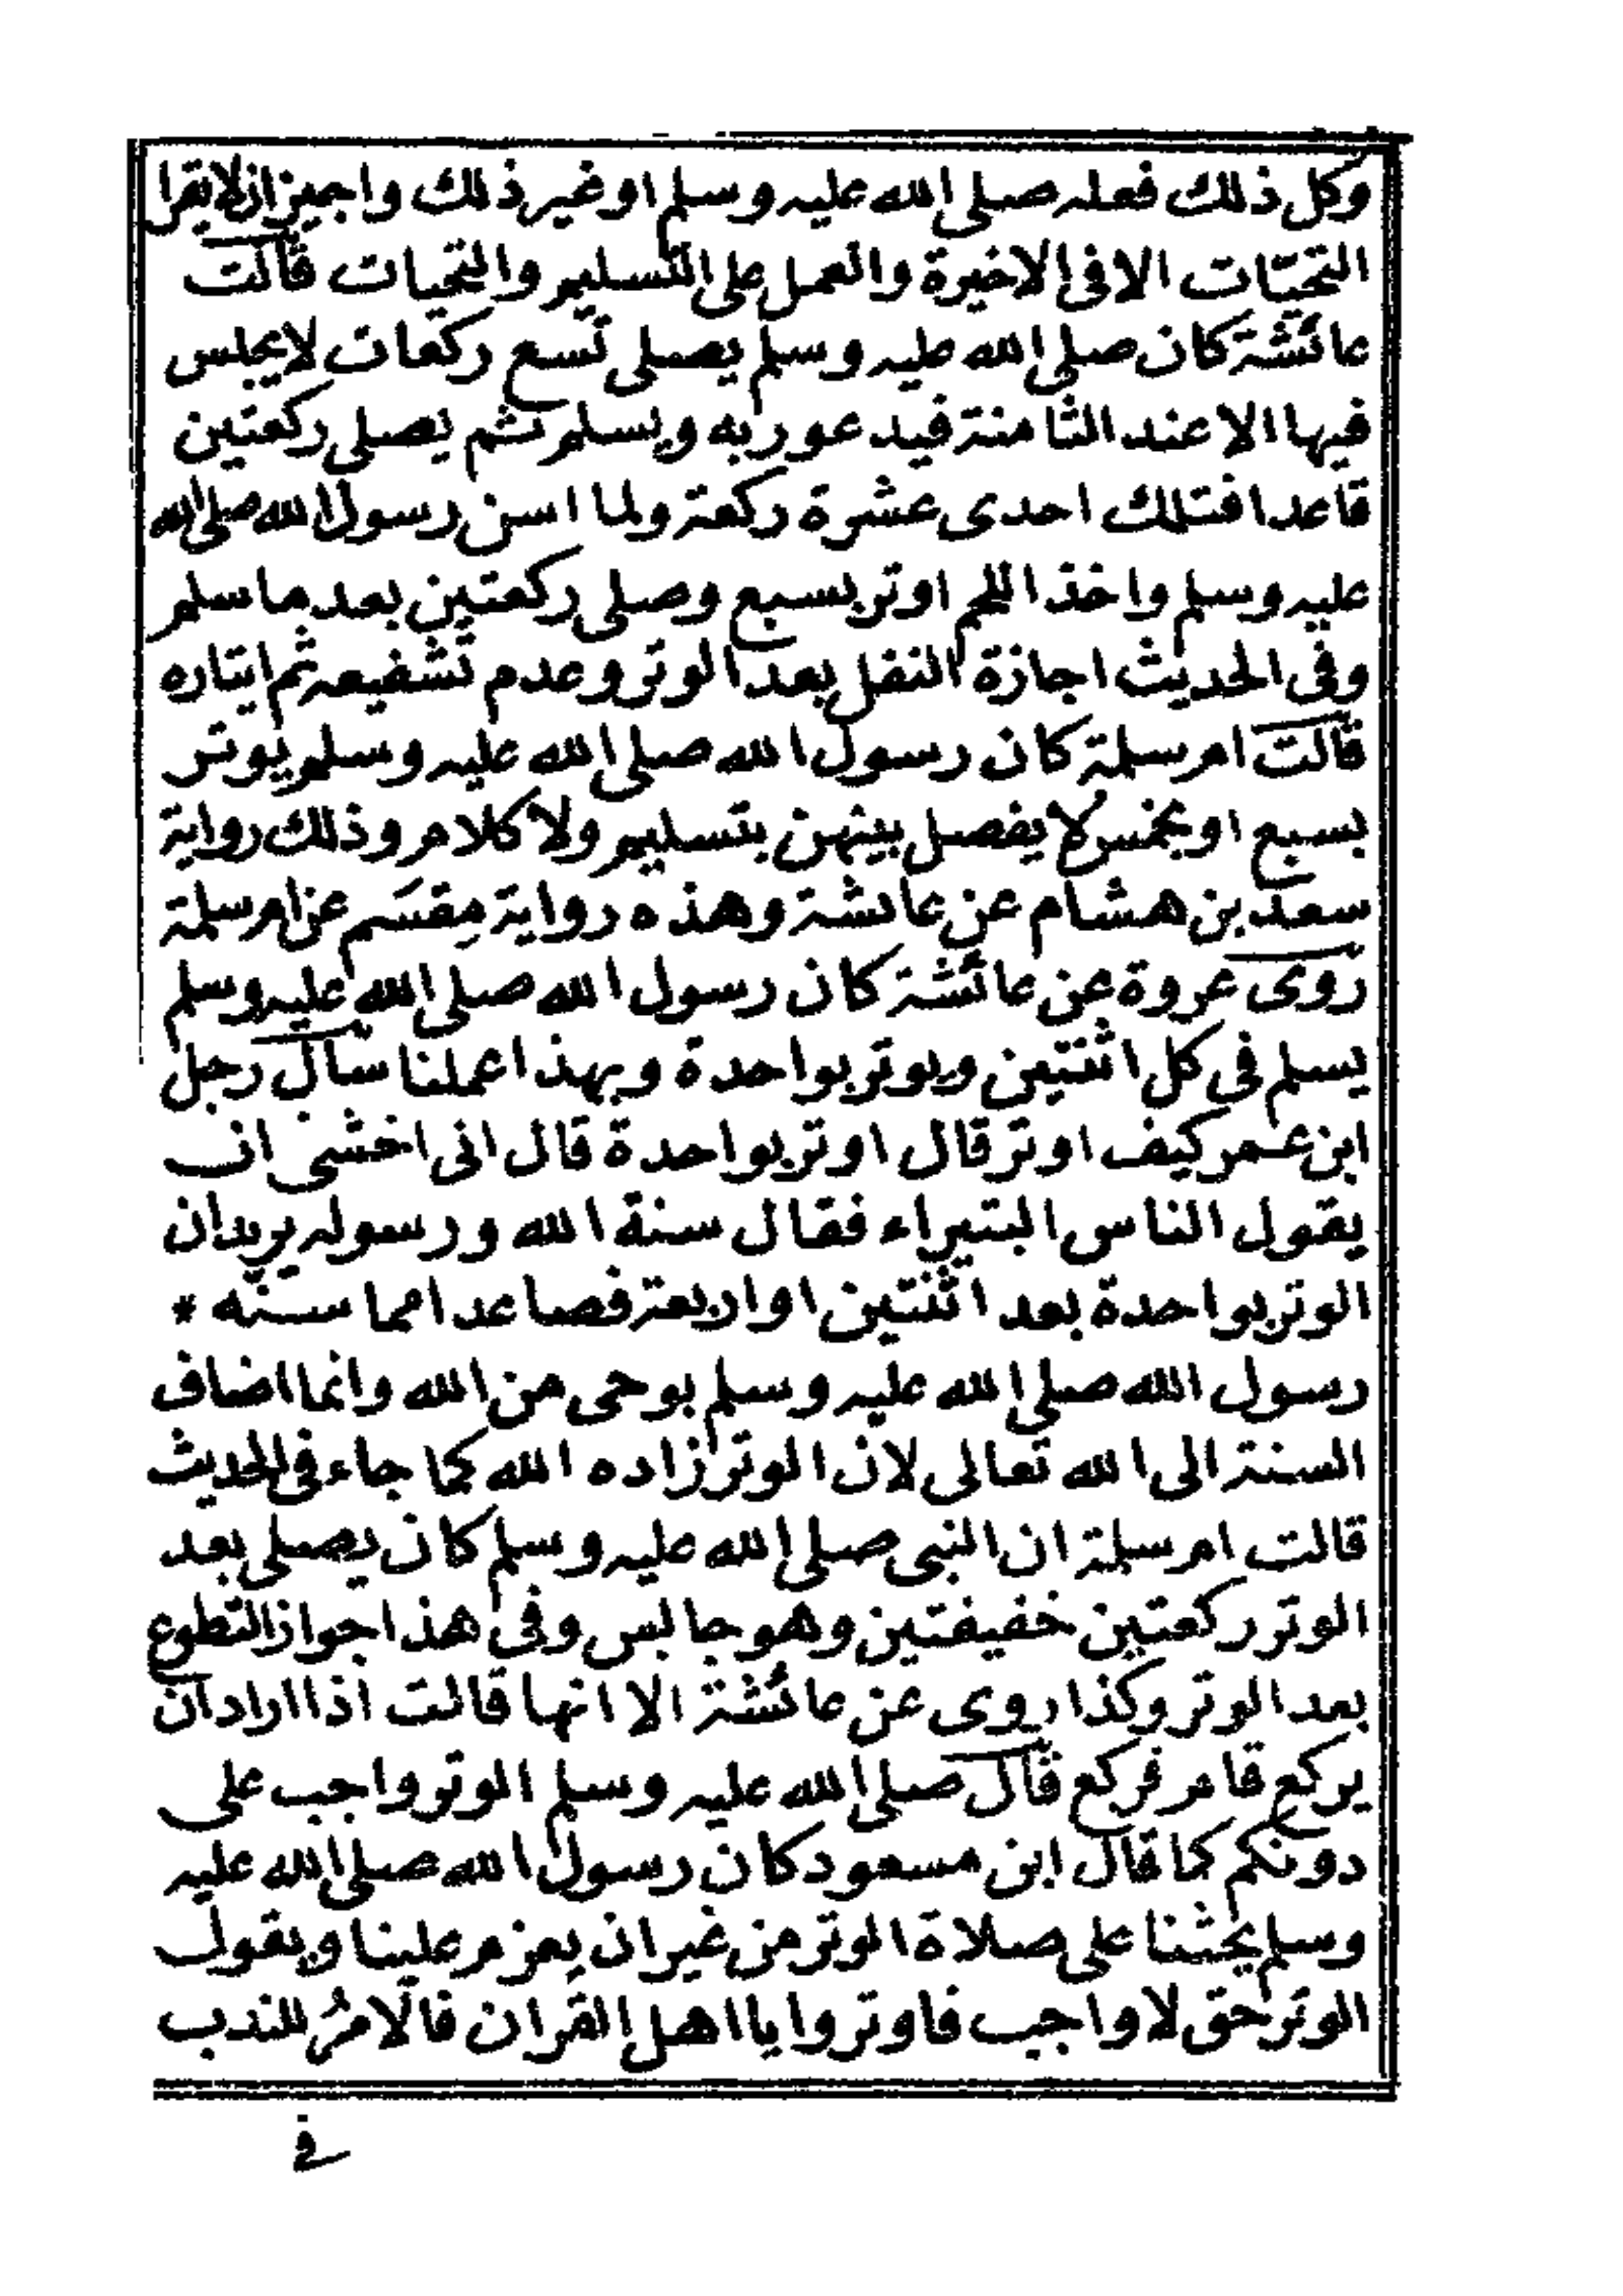 وكل ذلك فعله صلى الله عليه وسلم او غير ذلك واجيز ان لا يقرا
التحيّات الا فى الاخيرة والعمل على التسليم والتحيات قالت
عائشة كان صلى الله عليه وسلم يصلى تسع ركعات لا يجلس
فيها الا عند الثامنة فيدعو ربه ويسلم ثم يصلى ركعتين
قاعدا فتلك احدى عشرة ركعة ولما اسن رسول الله صلى الله
عليه وسلم واخذ اللحم اوتر بسبع وصلى ركعتين بعد ما سلم
وفى الحديث اجازة النفل بعد الوتر وعدم تشفيعه ثم ايتاره
قالت ام سلمة كان رسول الله صلى الله عليه وسلم يوتر
بسبع او بخمس لا يفصل بينهن بتسليم ولا كلام وذلك رواية
سعد بن هشام عن عائشة وهذه رواية مِقسَم عن ام سلمة
روى عروة عن عائشة كان رسول الله صلى الله عليه وسلم
يسلم فى كل اثنتين ويوتر بواحدة وبهذا عملنا سأل رجل
ابن عمر كيف اوتر قال اوتر بواحدة قال انى اخشى ان
يقول الناس البتيراء فقال سنة الله ورسوله يريد ان
الوتر بواحدة بعد اثنتين او اربعة فصاعدا مما سنّه *
رسول الله صلى الله عليه وسلم بوحى من الله وانما اضاف
السنة الى الله تعالى لان الوتر زاده الله كما جاء فى الحديث
قالت ام سلمة ان النبى صلى الله عليه وسلم كان يصلى بعد
الوتر ركعتين خفيفتين وهو جالس وفى هذا جواز التطوع
بعد الوتر وكذا روى عن عائشة الا انها قالت اذا اراد ان
يركع قام فركع قال صلى الله عليه وسلم الوتر واجب على
دونكم كما قال ابن مسعود كان رسول الله صلى الله عليه
وسلم يحثنا على صلاة الوتر من غير ان يعزم علينا ويقول
الوتر حق لا واجب فاوتروا يا اهل القران فالامرُ للندب
فى